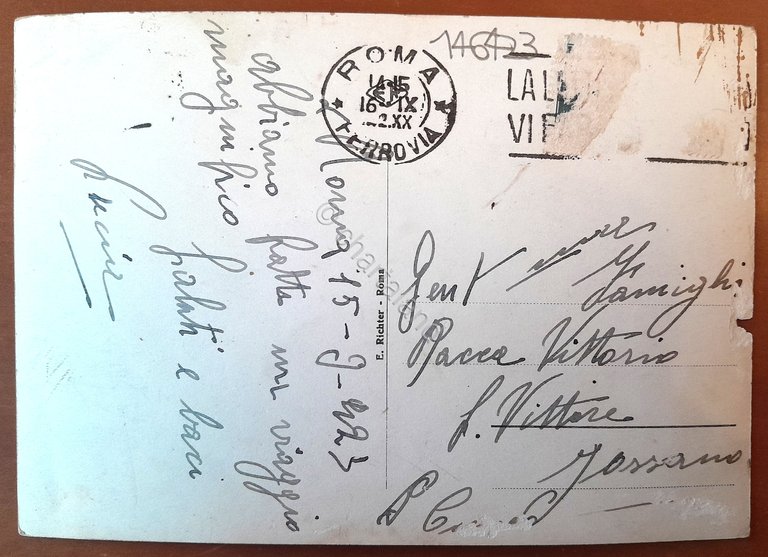 146423
ROMA
14-15
16 IX
FERROVIA
VI
Roma 15-9-42
abbiamo fatto un viaggio
magnifico
Saluti e baci
Lucia
E. Richter - Roma
Famiglia
Racca Vittorio
S. Vittore
Fossano
@chartaland